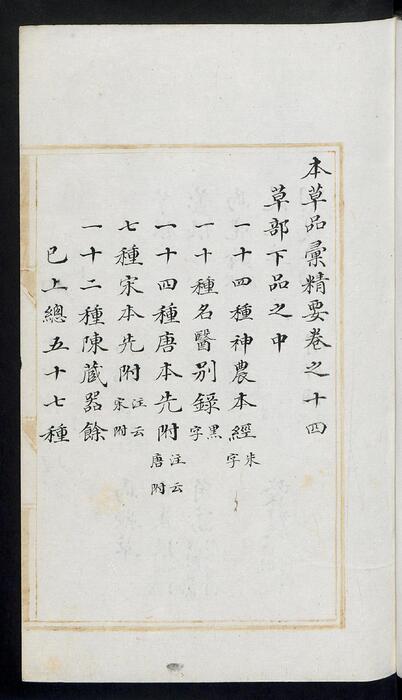 本草品彙精要卷之十四
草部下品之中
一十四種神農本經朱字
一十種名醫別錄黑字
一十四種唐本先附注云唐附
七種宋本先附注云宋附
一十二種陳藏器餘
已上總五十七種